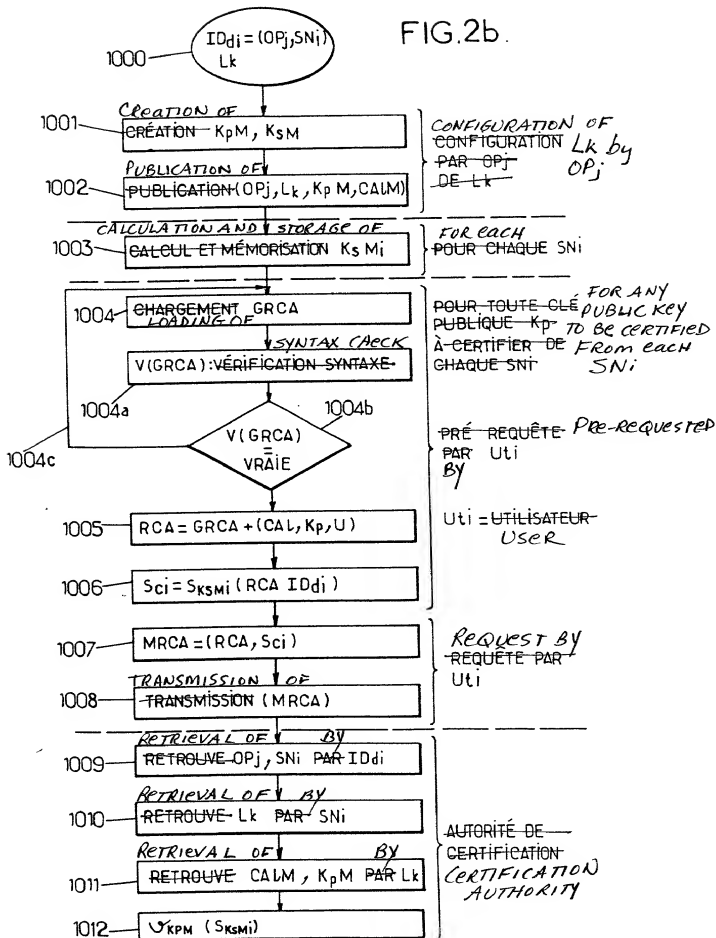 FIG.2b.
1000
IDdi = (OPj,SNi)
Lk
CREATION OF
1001
CRÉATION KpM, KsM
PUBLICATION OF
1002
PUBLICATION (OPj, Lk, KpM, CALM)
CONFIGURATION OF
CONFIGURATION Lk by
PAR OPj OPj
DE Lk
CALCULATION AND STORAGE OF
1003
CALCUL ET MÉMORISATION KsMi
FOR EACH
POUR CHAQUE SNi
1004
CHARGEMENT GRCA
LOADING OF
SYNTAX CHECK
V(GRCA):VÉRIFICATION SYNTAXE
1004a
1004b
1004c
V(GRCA)
=
VRAIE
POUR TOUTE CLÉ FOR ANY
PUBLIQUE Kp PUBLIC KEY
À CERTIFIER DE TO BE CERTIFIED
CHAQUE SNi FROM EACH
SNi
PRÉ REQUÊTE PRE-REQUESTED
PAR Uti
BY
Uti = UTILISATEUR
USER
1005
RCA = GRCA + (CAL, Kp, U)
1006
Sci = SKSMi (RCA IDdi)
1007
MRCA = (RCA, Sci)
TRANSMISSION OF
1008
TRANSMISSION (MRCA)
REQUEST BY
REQUÊTE PAR
Uti
RETRIEVAL OF BY
1009
RETROUVE OPj, SNi PAR IDdi
RETRIEVAL OF BY
1010
RETROUVE Lk PAR SNi
RETRIEVAL OF BY
1011
RETROUVE CALM, KpM PAR Lk
AUTORITÉ DE
CERTIFICATION
CERTIFICATION
AUTHORITY
1012
VKPM (SKSMi)